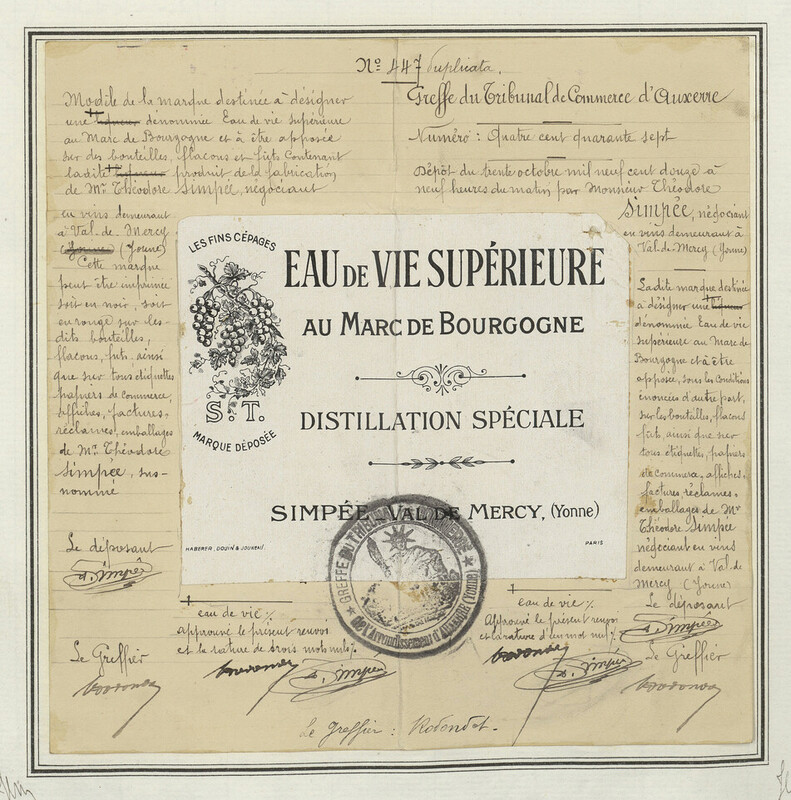 Nº 447 Duplicata.
Modèle de la marque destinée à désigner
une liqueur dénommée Eau de vie supérieure
au Marc de Bourgogne et à être apposée
sur des bouteilles, flacons et fûts contenant
la dite liqueur produit de la fabrication
de Mr Théodore Simpée, négociant
en vins demeurant
à Val-de-Mercy
(Yonne) (Yonne)
Cette marque
peut être imprimée
soit en noir, soit
en rouge sur les
dits bouteilles,
flacons, fûts ainsi
que sur tous étiquettes
papiers de commerce,
affiches, factures,
réclames, emballages
de Mr Théodore
Simpée, sus-
nommé
Le déposant
T. Simpée
Le Greffier
Greffe du Tribunal de Commerce d'Auxerre
Numéro : Quatre cent quarante sept
Dépôt du trente octobre mil neuf cent douze à
neuf heures du matin par Monsieur Théodore
Simpée, négociant
en vins demeurant à
Val de Mercy (Yonne)
La dite marque destinée
à désigner une liqueur
dénommée Eau de vie
supérieure au Marc de
Bourgogne et à être
apposée, sous les conditions
énoncées d'autre part,
sur les bouteilles, flacons
fûts, ainsi que sur
tous étiquettes, papiers
de commerce, affiches,
factures, réclames,
emballages de Mr
Théodore Simpée
négociant en vins
demeurant à Val-de
Mercy (Yonne)
Le déposant
T. Simpée
Le Greffier
LES FINS CÉPAGES
S.T.
MARQUE DÉPOSÉE
EAU DE VIE SUPÉRIEURE
AU MARC DE BOURGOGNE
DISTILLATION SPÉCIALE
SIMPÉE VAL DE MERCY, (Yonne)
HABERER, DOUIN & JOUNEAU PARIS
GREFFE DU TRIBUNAL DE COMMERCE
de l'Arrondissement d'AUXERRE (Yonne)
eau de vie
Approuvé le présent renvoi
et la rature de trois mots nuls
T. Simpée
eau de vie
Approuvé le présent renvoi
et la rature d'un mot nul
T. Simpée
Le Greffier : Rodondet.